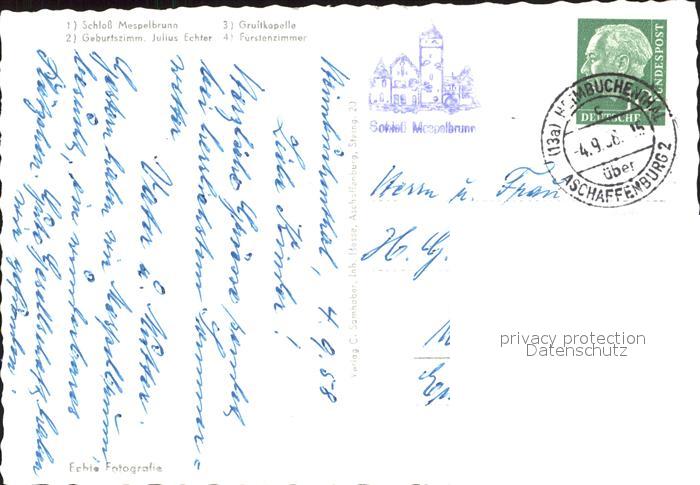 1) Schloß Mespelbrunn 3) Gruftkapelle
2) Geburtszimm. Julius Echter 4) Fürstenzimmer
Schloß Mespelbrunn
DEUTSCHE BUNDESPOST
(13a) HEIMBUCHENTHAL
-4.9.58.-15
über
ASCHAFFENBURG 2
Heimbuchenthal, 4.9.58
Liebe Kinder!
Herzliche Grüsse sendet
bei herrlichstem Sommer=
wetter
Vater u. Mutter.
Gestern haben wir Mespelbrunn
besucht, ein wunderbares
Gute Gesellschaft haben
wir gefunden.
Verlag C. Samhaber, Inh. Hesse, Aschaffenburg, Steing. 23
Herrn u. Frau
H. G.
privacy protection
Datenschutz
Echte Fotografie